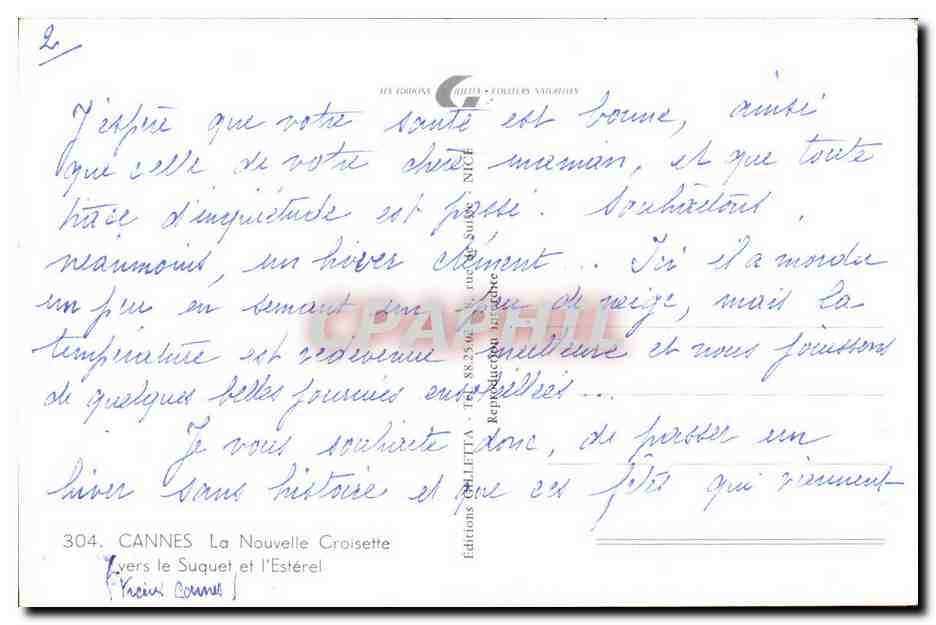 2
LES EDITIONS GILLETTA - COULEURS NATURELLES
J'espère que votre santé est bonne, ainsi
que celle de votre chère maman, et que toute
trace d'inquiétude est passé. Souhaitons,
néanmoins, un hiver clément... Ici il a mordu
un peu en semant un peu de neige, mais la
température est redevenue meilleure et nous jouissons
de quelques belles journées ensoleillées...
Je vous souhaite donc, de passer un
hiver sans histoire et que ces fêtes qui viennent
304. CANNES La Nouvelle Croisette
vers le Suquet et l'Estérel
(Vieux Cannes)
Editions GILLETTA - Tel. 88.25.6 rue de Suisse - NICE
Reproduction interdite
CPAPHIL